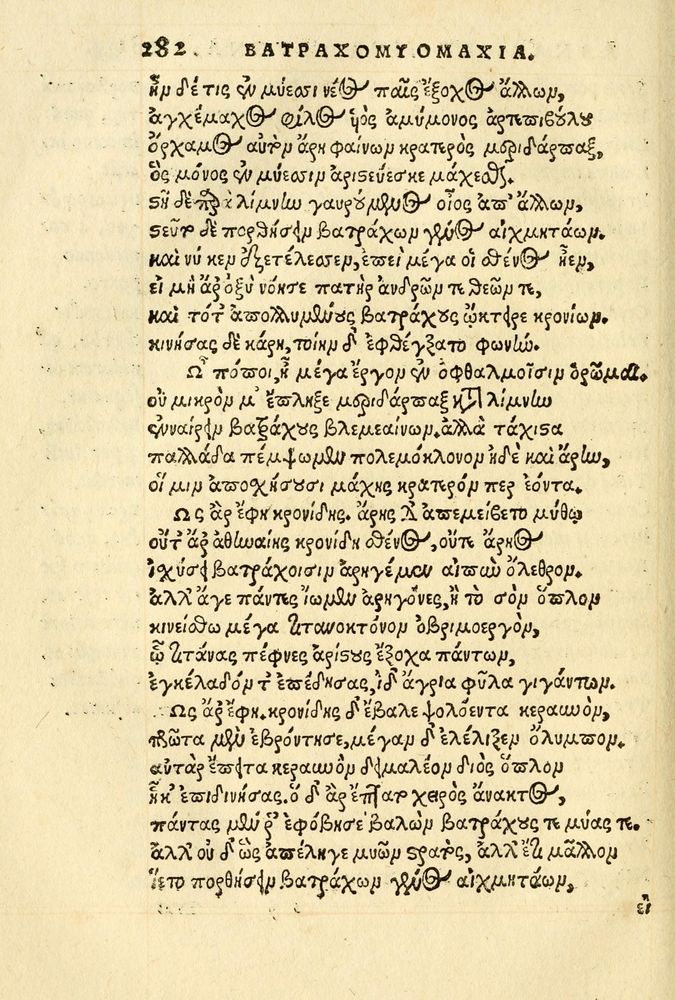 282. ΒΑΤΡΑΧΟΜΥΟΜΑΧΙΑ.
ἦν δέ τις ἐν μύεσσι νέος παῖς ἔξοχος ἄλλων,
ἀγχέμαχος φίλος ὑὸς ἀμύμονος ἀρτεπιβούλου
ὄρχαμος αὐτὸν ἄρη φαίνων κρατερὸς μεριδάρπαξ,
ὃς μόνος ἐν μύεσσιν ἀρίστευεσκε μάχεσθαι.
στῆ δὲ παρὰ λίμνην γαυρούμενος οἶος ἀπ' ἄλλων,
στεῦτο δὲ πορθήσειν βατράχων γένος αἰχμητάων.
καὶ νύ κεν ἐξετέλεσσεν, ἐπεὶ μέγα οἱ σθένος ἦεν,
εἰ μὴ ἄρ' ὀξὺ νόησε πατὴρ ἀνδρῶν τε θεῶν τε,
καὶ τότ' ἀπολλυμένους βατράχους ᾤκτειρε κρονίων.
κινήσας δὲ κάρη, τοίην δ' ἐφθέγξατο φωνήν.
Ὢ πόποι, ἦ μέγα ἔργον ἐν ὀφθαλμοῖσιν ὁρῶμαι.
οὐ μικρὸν μ' ἔπληξε μεριδάρπαξ κατὰ λίμνην
ἐναίρειν βατράχους βλεμεαίνων. ἀλλὰ τάχιστα
παλλάδα πέμψωμεν πολεμόκλονον ἠδὲ καὶ ἄρην,
οἵ μιν ἀποσχήσουσι μάχης κρατερόν περ ἐόντα.
Ὣς ἄρ' ἔφη κρονίδης. ἄρης δ' ἀπεμείβετο μύθῳ
οὔτ' ἄρ' ἀθηναίης κρονίδη σθένος, οὔτε ἄρηος
ἰσχύσει βατράχοισιν ἀρηγέμεν αἰπὺν ὄλεθρον.
ἀλλ' ἄγε πάντες ἴωμεν ἀρηγόνες, ἢ τὸ σὸν ὅπλον
κινείσθω μέγα τιτανοκτόνον ὀβριμοεργὸν,
ᾧ τιτάνας πέφνες ἀρίστους ἔξοχα πάντων,
ἐγκέλαδόν τ' ἐπέδησας, ἰδ' ἄγρια φῦλα γιγάντων.
Ὣς ἄρ' ἔφη. κρονίδης δ' ἔβαλε ψολόεντα κεραυνὸν,
πρῶτα μὲν ἐβρόντησε, μέγαν δ' ἐλέλιξεν ὄλυμπον.
αὐτὰρ ἔπειτα κεραυνὸν δειμαλέον διὸς ὅπλον
ἧκ' ἐπιδινήσας. ὁ δ' ἄρ' ἔπτατο χειρὸς ἄνακτος,
πάντας μέν ῥ' ἐφόβησε βαλὼν βατράχους τε μύας τε.
ἀλλ' οὐ δ' ὣς ἀπέληγε μυῶν στρατὸς, ἀλλ' ἔτι μᾶλλον
ἵετο πορθήσειν βατράχων γένος αἰχμητάων,
εἰ